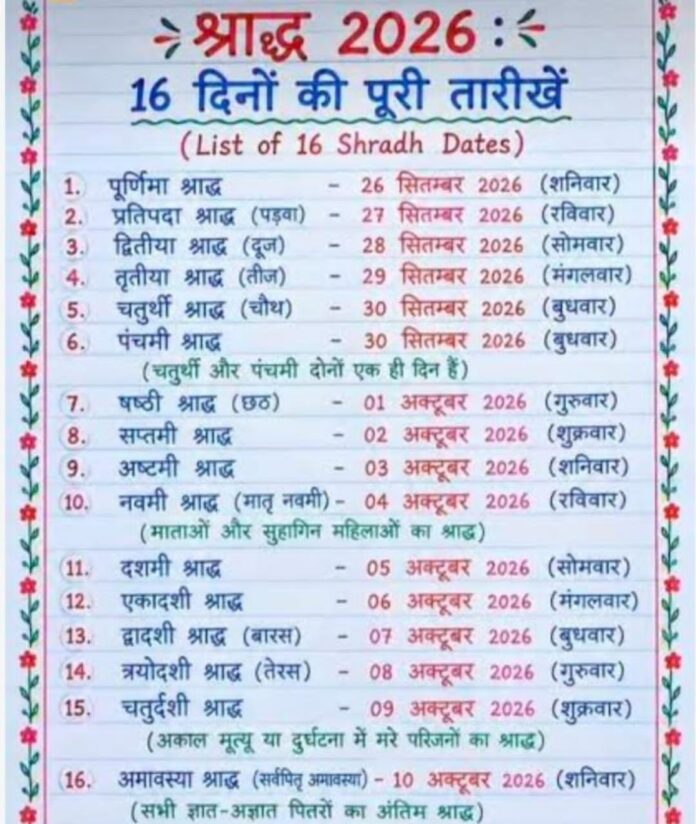 श्राद्ध 2026 :
16 दिनों की पूरी तारीखें
(List of 16 Shradh Dates)
1. पूर्णिमा श्राद्ध - 26 सितम्बर 2026 (शनिवार)
2. प्रतिपदा श्राद्ध (पड़वा) - 27 सितम्बर 2026 (रविवार)
3. द्वितीया श्राद्ध (दूज) - 28 सितम्बर 2026 (सोमवार)
4. तृतीया श्राद्ध (तीज) - 29 सितम्बर 2026 (मंगलवार)
5. चतुर्थी श्राद्ध (चौथ) - 30 सितम्बर 2026 (बुधवार)
6. पंचमी श्राद्ध - 30 सितम्बर 2026 (बुधवार)
(चतुर्थी और पंचमी दोनों एक ही दिन हैं)
7. षष्ठी श्राद्ध (छठ) - 01 अक्टूबर 2026 (गुरुवार)
8. सप्तमी श्राद्ध - 02 अक्टूबर 2026 (शुक्रवार)
9. अष्टमी श्राद्ध - 03 अक्टूबर 2026 (शनिवार)
10. नवमी श्राद्ध (मातृ नवमी) - 04 अक्टूबर 2026 (रविवार)
(माताओं और सुहागिन महिलाओं का श्राद्ध)
11. दशमी श्राद्ध - 05 अक्टूबर 2026 (सोमवार)
12. एकादशी श्राद्ध - 06 अक्टूबर 2026 (मंगलवार)
13. द्वादशी श्राद्ध (बारस) - 07 अक्टूबर 2026 (बुधवार)
14. त्रयोदशी श्राद्ध (तेरस) - 08 अक्टूबर 2026 (गुरुवार)
15. चतुर्दशी श्राद्ध - 09 अक्टूबर 2026 (शुक्रवार)
(अकाल मृत्यू या दुर्घटना में मरे परिजनों का श्राद्ध)
16. अमावस्या श्राद्ध (सर्वपितृ अमावस्या) - 10 अक्टूबर 2026 (शनिवार)
(सभी ज्ञात-अज्ञात पितरों का अंतिम श्राद्ध)